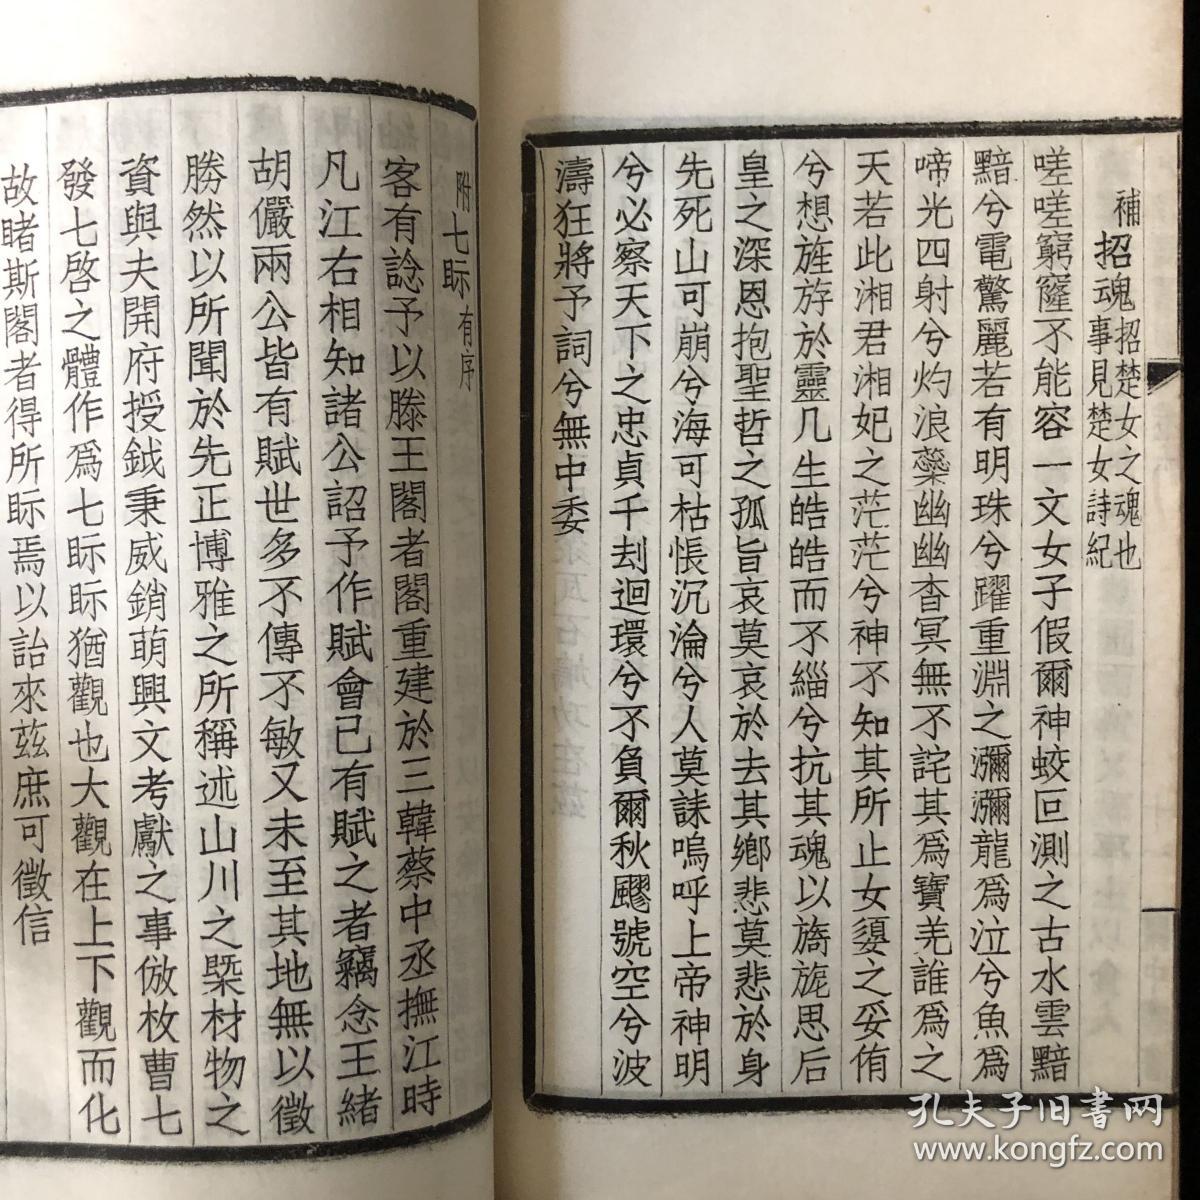 補招魂招楚女之魂也
事見楚女詩紀
嗟嗟窮窿不能容一文女子假爾神蛟叵測之古水雲黯
黯兮電驚麗若有明珠兮躍重淵之瀰瀰龍為泣兮魚為
啼光四射兮灼浪蘂幽幽杳冥無不詫其為寶羌誰為之
天若此湘君湘妃之茫茫兮神不知其所止女嬃之妥侑
兮想旌斿於靈几生皓皓而不緇兮抗其魂以旖旎思后
皇之深恩抱聖哲之孤旨哀莫哀於去其鄉悲莫悲於身
先死山可崩兮海可枯悵沉淪兮人莫誄嗚呼上帝神明
兮必察天下之忠貞千刦迴環兮不負爾秋飂號空兮波
濤狂將予詞兮無中委
附七眎有序
客有諗予以滕王閣者閣重建於三韓蔡中丞撫江時
凡江右相知諸公詔予作賦會已有賦之者竊念王緒
胡儼兩公皆有賦世多不傳不敏又未至其地無以徵
勝然以所聞於先正博雅之所稱述山川之槩材物之
資與夫開府授鉞秉威銷萌興文考獻之事倣枚曹七
發七啓之體作爲七眎眎猶觀也大觀在上下觀而化
故睹斯閣者得所眎焉以詒來兹庶可徵信
孔夫子旧书网
www.kongfz.com